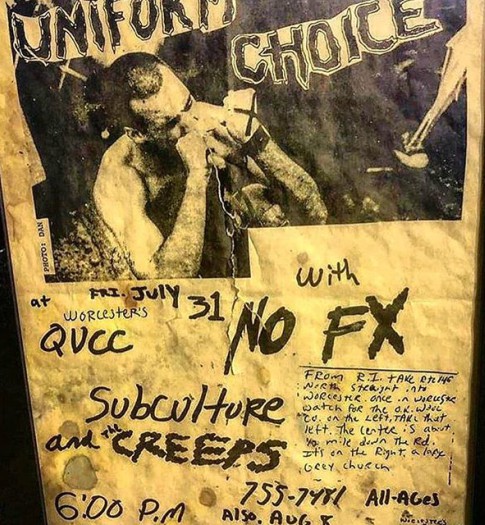 UNIFORM
CHOICE
PHOTO: DAN
with
at FRI. JULY 31
WORCESTER'S
QVCC
NO FX
FROM R.I. TAKE Rte 146
North straight into
WORCESTER. once in WORCESTER
watch for the O.K. WOOL
CO. on the left. TAKE that
left. The center is about
mile down the Rd.
It's on the Right, a large
Grey church
Subculture
and the CREEPS
6:00 P.M
755-7481 All-Ages
Also, AUG 8